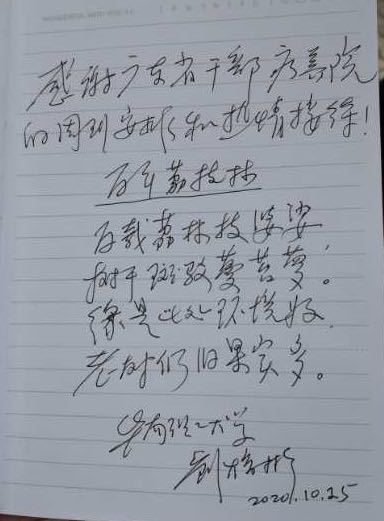 感谢广东省干部疗养院
的周到安排和热情接待!
百年荔枝林
百载荔林枝婆娑,
树干斑驳蔓苔萝。
缘是此处环境好,
老树仍旧果实多。
华南理工大学
2020.10.25